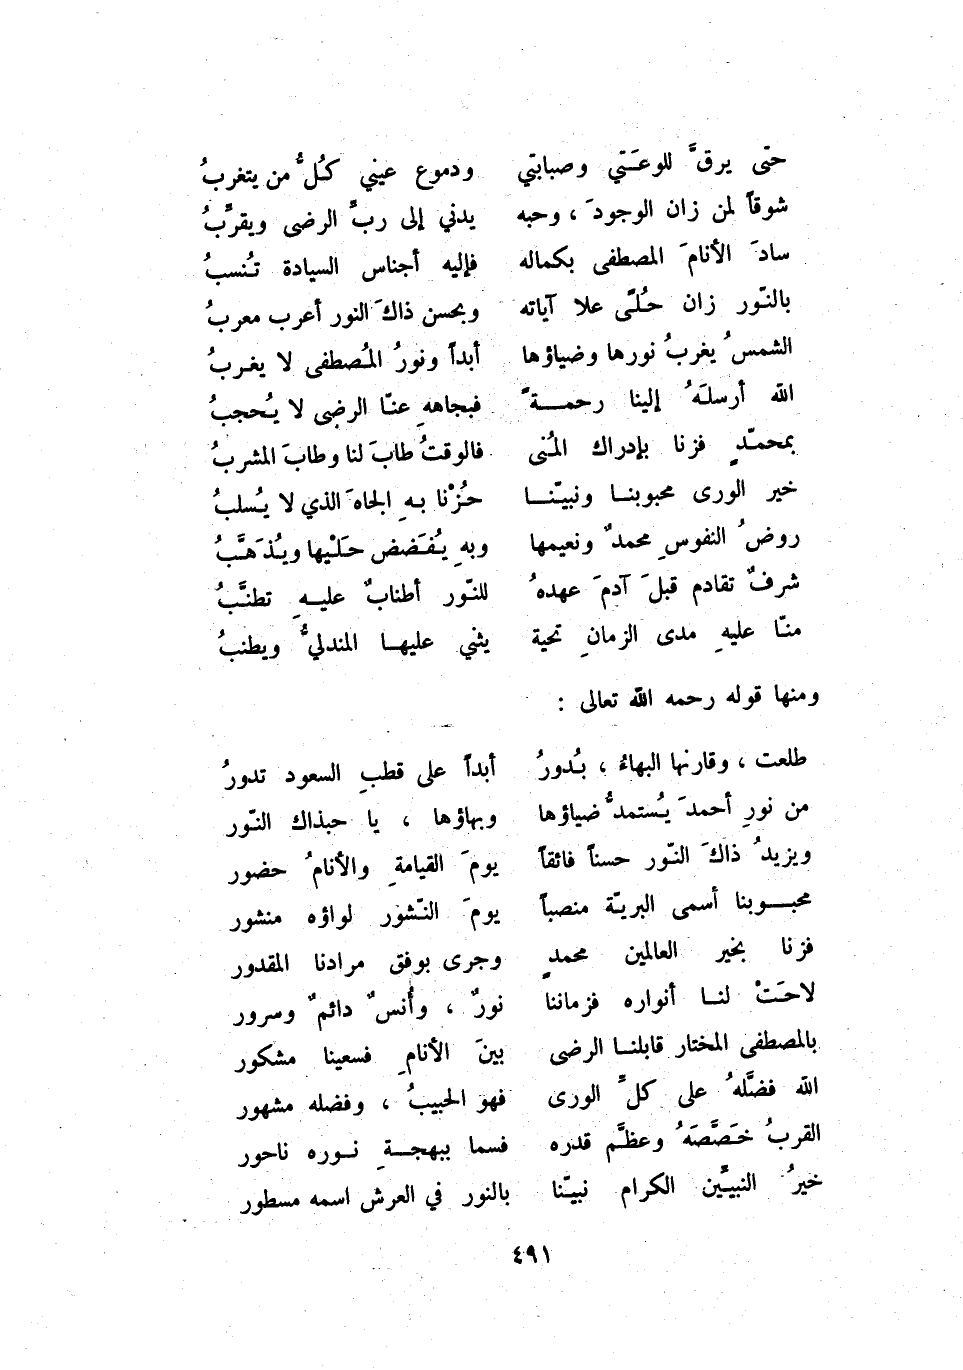 حتّى يرقَّ للوعَتي وصبابتي ودموع عيني كلُّ من يتغربُ
شوقاً لمن زان الوجودَ ، وحبه يدني إلى ربِّ الرضى ويقرِّبُ
سادَ الأنامَ المصطفى بكماله فإليه أجناس السيادة تُنسبُ
بالنّور زان حُلًى علا آياته وبحسن ذاكَ النور أعرب معربُ
الشمسُ يغربُ نورها وضياؤها أبداً ونورُ المُصطفى لا يغربُ
الله أرسلَهُ إلينا رحمــةً فبجاههِ عنّا الرضى لا يُحجبُ
بمحمّدٍ فزنا بإدراك المُنى فالوقتُ طابَ لنا وطابَ المشربُ
خير الورى محبوبنا ونبيّنا حُزْنا بهِ الجاهَ الذي لا يُسلبُ
روضُ النفوسِ محمدٌ ونعيمها وبهِ يُفَضض حَلْيها ويُذَهَّبُ
شرفٌ تقادم قبلَ آدمَ عهدهُ للنّور أطنابٌ عليهِ تطنَّبُ
منّا عليهِ مدى الزمانِ تحية يثني عليها المندليُّ ويطنبُ
ومنها قوله رحمه الله تعالى :
طلعت ، وقارنها البهاءُ ، بُدورُ أبداً على قطبِ السعود تدورُ
من نورِ أحمدَ يُستمدُّ ضياؤها وبهاؤها ، يا حبذاك النّور
ويزيدُ ذاكَ النّور حسناً فائقاً يومَ القيامةِ والأنامُ حضور
محبــوبنا أسمى البريّة منصباً يومَ النّشور لواؤه منشور
فزنا بخير العالمين محمدٍ وجرى بوفق مرادنا المقدور
لاحَتْ لنا أنواره فزماننا نورٌ ، وأُنسٌ دائمٌ وسرور
بالمصطفى المختار قابلنا الرضى بينَ الأنامِ فسعينا مشكور
الله فضَّلهُ على كلِّ الورى فهو الحبيبُ ، وفضله مشهور
القربُ خَصَّصَهُ وعظَّم قدره فسما ببهجــةِ نــوره ناحور
خيرُ النبيِّين الكرام نبيّنا بالنور في العرش اسمه مسطور
٤٩١